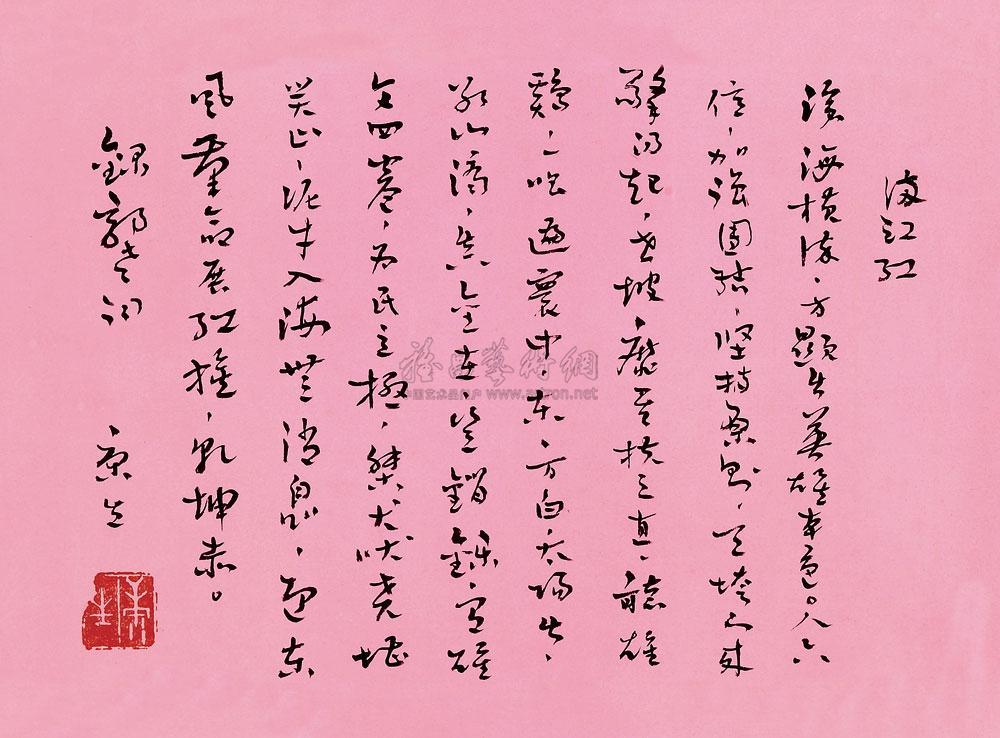 满江红
沧海横流、方显出英雄本色。人六
億、加强团结、坚持原则、天垮下来
擎得起、世披靡矣扶之直、聼雄
鷄一唱遍寰中、东方白、太阳出、
冰山滴、真金在、岂销铄、有雄
文四卷、为民立极、桀犬吠尧堪
笑止、泥牛入海無消息、迎东
风革命展红旗、乾坤赤。
録郭老词 康生
康生
雅昌藝術網
中国艺术品门户 www.artron.net